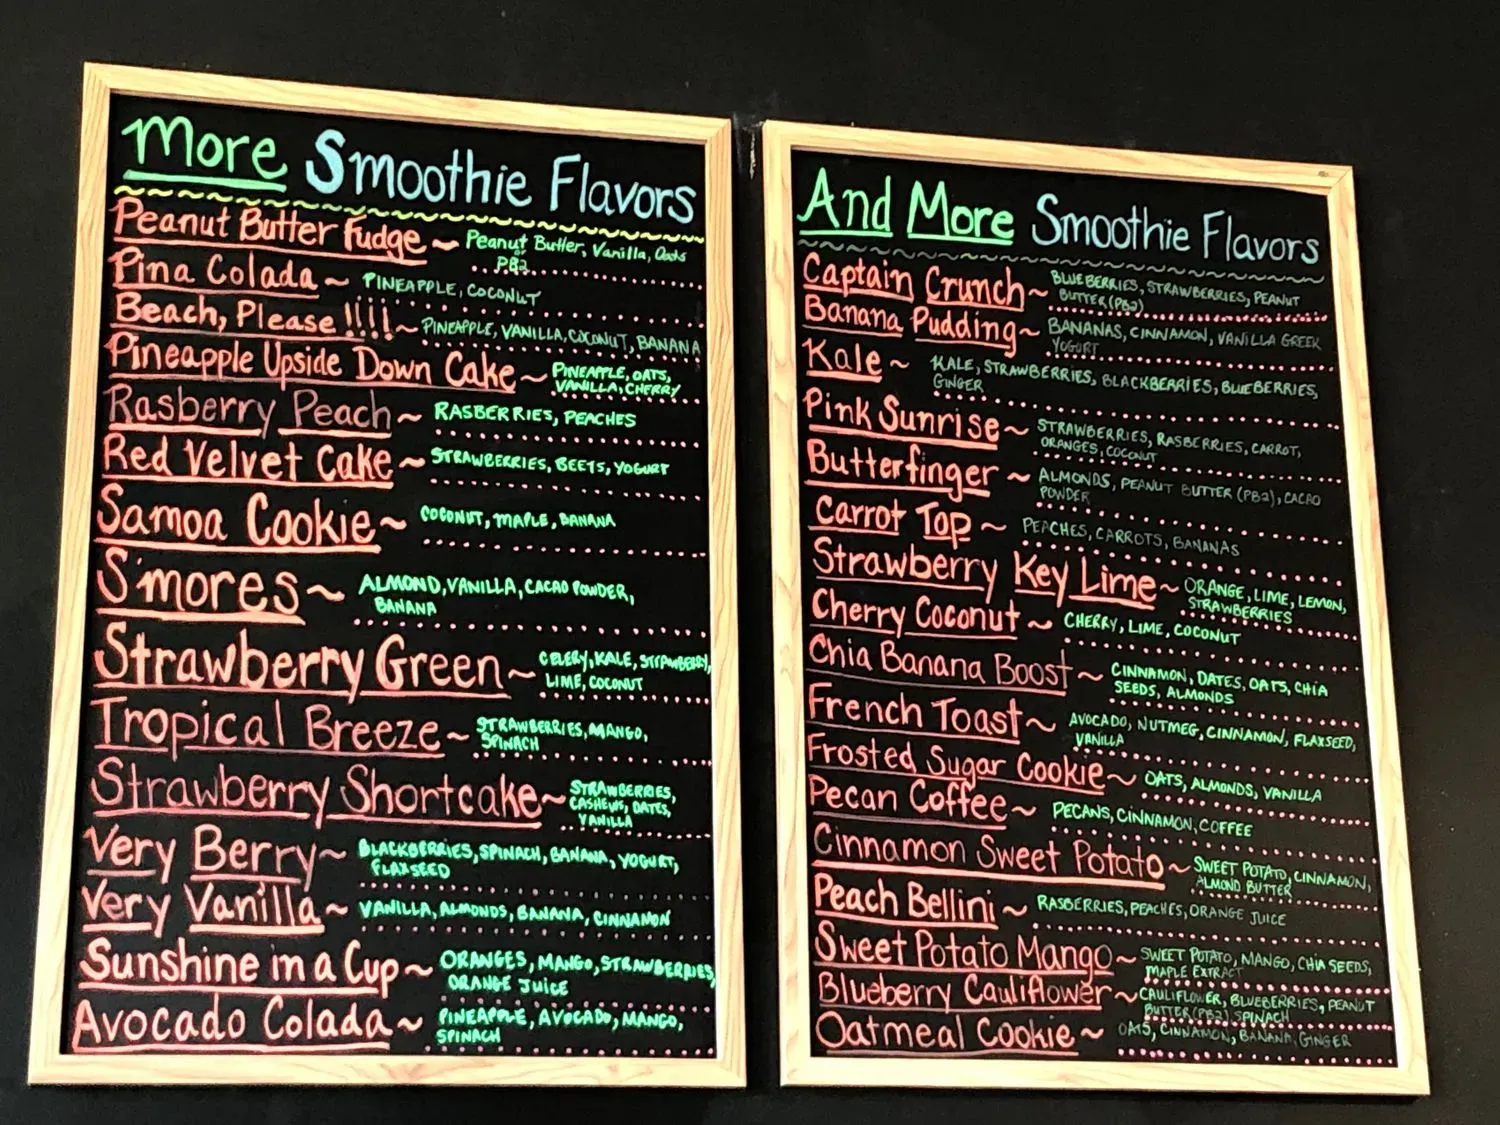 More Smoothie Flavors
Peanut Butter Fudge ~ Peanut Butter, Vanilla, Oats
or
PB2
Pina Colada ~ PINEAPPLE, COCONUT
Beach, Please !!!! ~ PINEAPPLE, VANILLA, COCONUT, BANANA
Pineapple Upside Down Cake ~ PINEAPPLE, OATS,
VANILLA, CHERRY
Rasberry Peach ~ RASBERRIES, PEACHES
Red Velvet Cake ~ STRAWBERRIES, BEETS, YOGURT
Samoa Cookie ~ COCONUT, MAPLE, BANANA
S'mores ~ ALMOND, VANILLA, CACAO POWDER,
BANANA
Strawberry Green ~ CELERY, KALE, STRAWBERRY,
LIME, COCONUT
Tropical Breeze ~ STRAWBERRIES, MANGO,
SPINACH
Strawberry Shortcake ~ STRAWBERRIES,
CASHEWS, DATES,
VANILLA
Very Berry ~ BLACKBERRIES, SPINACH, BANANA, YOGURT,
FLAXSEED
Very Vanilla ~ VANILLA, ALMONDS, BANANA, CINNAMON
Sunshine in a Cup ~ ORANGES, MANGO, STRAWBERRIES,
ORANGE JUICE
Avocado Colada ~ PINEAPPLE, AVOCADO, MANGO,
SPINACH
And More Smoothie Flavors
Captain Crunch ~ BLUEBERRIES, STRAWBERRIES, PEANUT
BUTTER (PB2)
Banana Pudding ~ BANANAS, CINNAMON, VANILLA GREEK
YOGURT
Kale ~ KALE, STRAWBERRIES, BLACKBERRIES, BLUEBERRIES,
GINGER
Pink Sunrise ~ STRAWBERRIES, RASBERRIES, CARROT,
ORANGES, COCONUT
Butterfinger ~ ALMONDS, PEANUT BUTTER (PB2), CACAO
POWDER
Carrot Top ~ PEACHES, CARROTS, BANANAS
Strawberry Key Lime ~ ORANGE, LIME, LEMON,
STRAWBERRIES
Cherry Coconut ~ CHERRY, LIME, COCONUT
Chia Banana Boost ~ CINNAMON, DATES, OATS, CHIA
SEEDS, ALMONDS
French Toast ~ AVOCADO, NUTMEG, CINNAMON, FLAXSEED,
VANILLA
Frosted Sugar Cookie ~ OATS, ALMONDS, VANILLA
Pecan Coffee ~ PECANS, CINNAMON, COFFEE
Cinnamon Sweet Potato ~ SWEET POTATO, CINNAMON,
ALMOND BUTTER
Peach Bellini ~ RASBERRIES, PEACHES, ORANGE JUICE
Sweet Potato Mango ~ SWEET POTATO, MANGO, CHIA SEEDS,
MAPLE EXTRACT
Blueberry Cauliflower ~ CAULIFLOWER, BLUEBERRIES, PEANUT
BUTTER (PB2) SPINACH
Oatmeal Cookie ~ OATS, CINNAMON, BANANA, GINGER